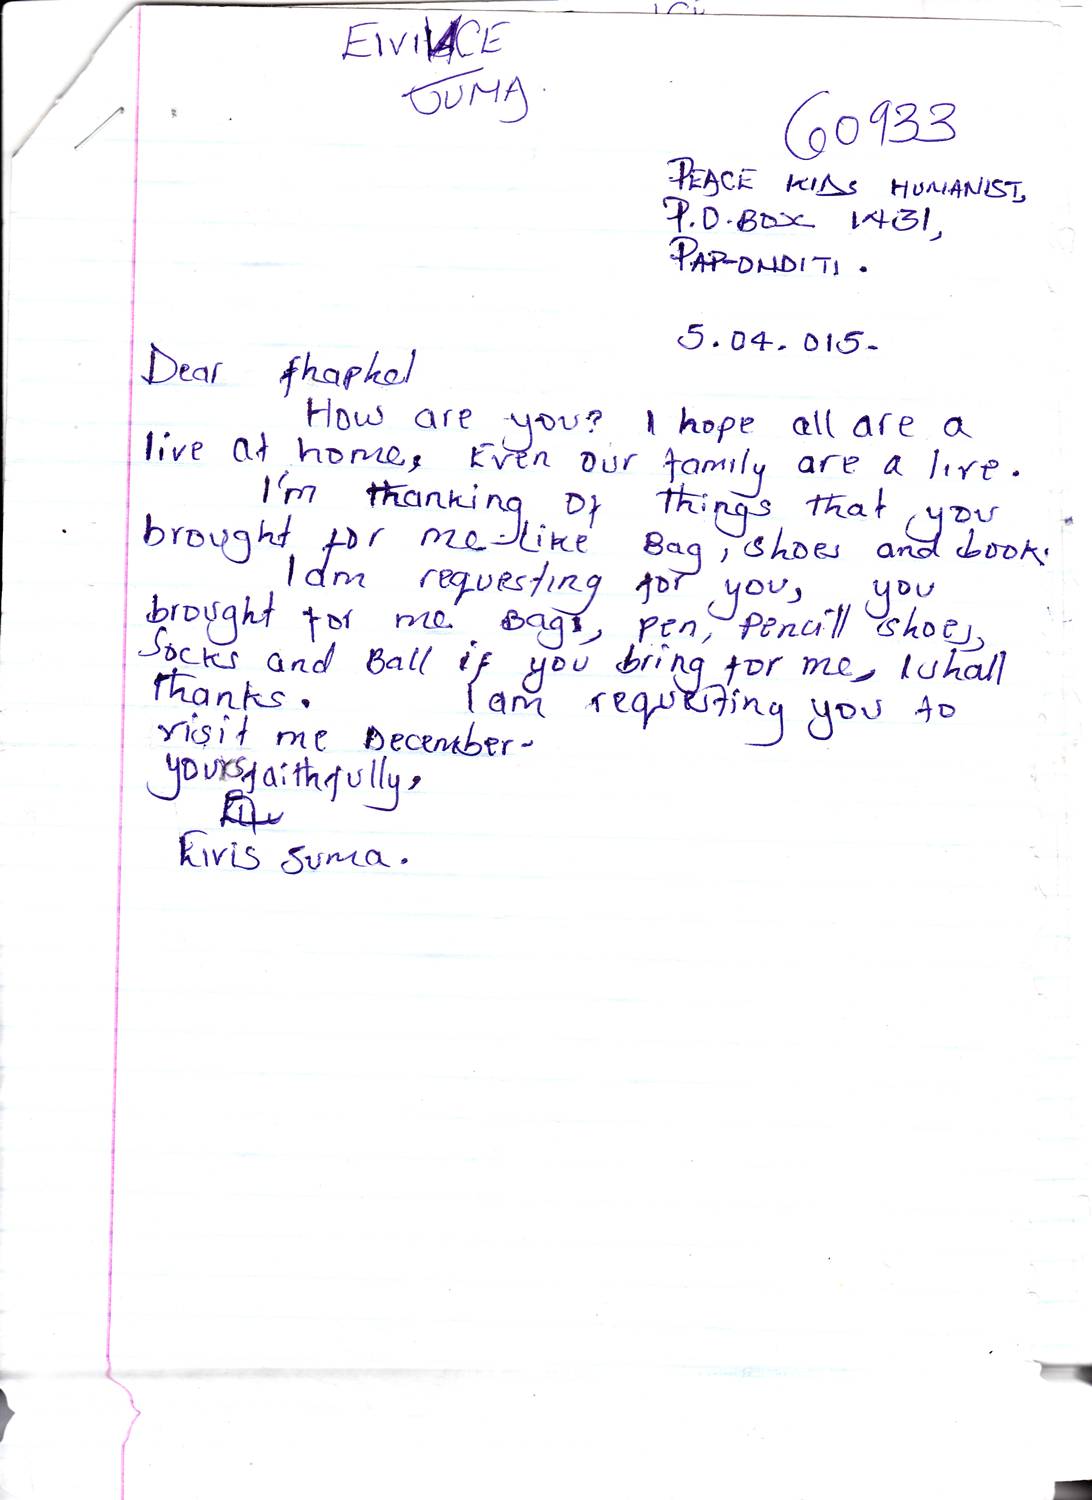 EIVINCE
JUMA
60933
PEACE KIDS HUMANIST,
P.O. BOX 1431,
PAP-ONDITI.
5.04.015-
Dear fhapkel
How are you? I hope all are a
live at home, Even our family are a live.
I'm thanking of things that you
brought for me-like Bag, shoes and book.
I am requesting for you, you
brought for me Bags, pen, pencill shoes,
Socks and Ball if you bring for me, I shall
thanks. I am requesting you to
visit me December-
yours faithfully,
Eivis Juma.